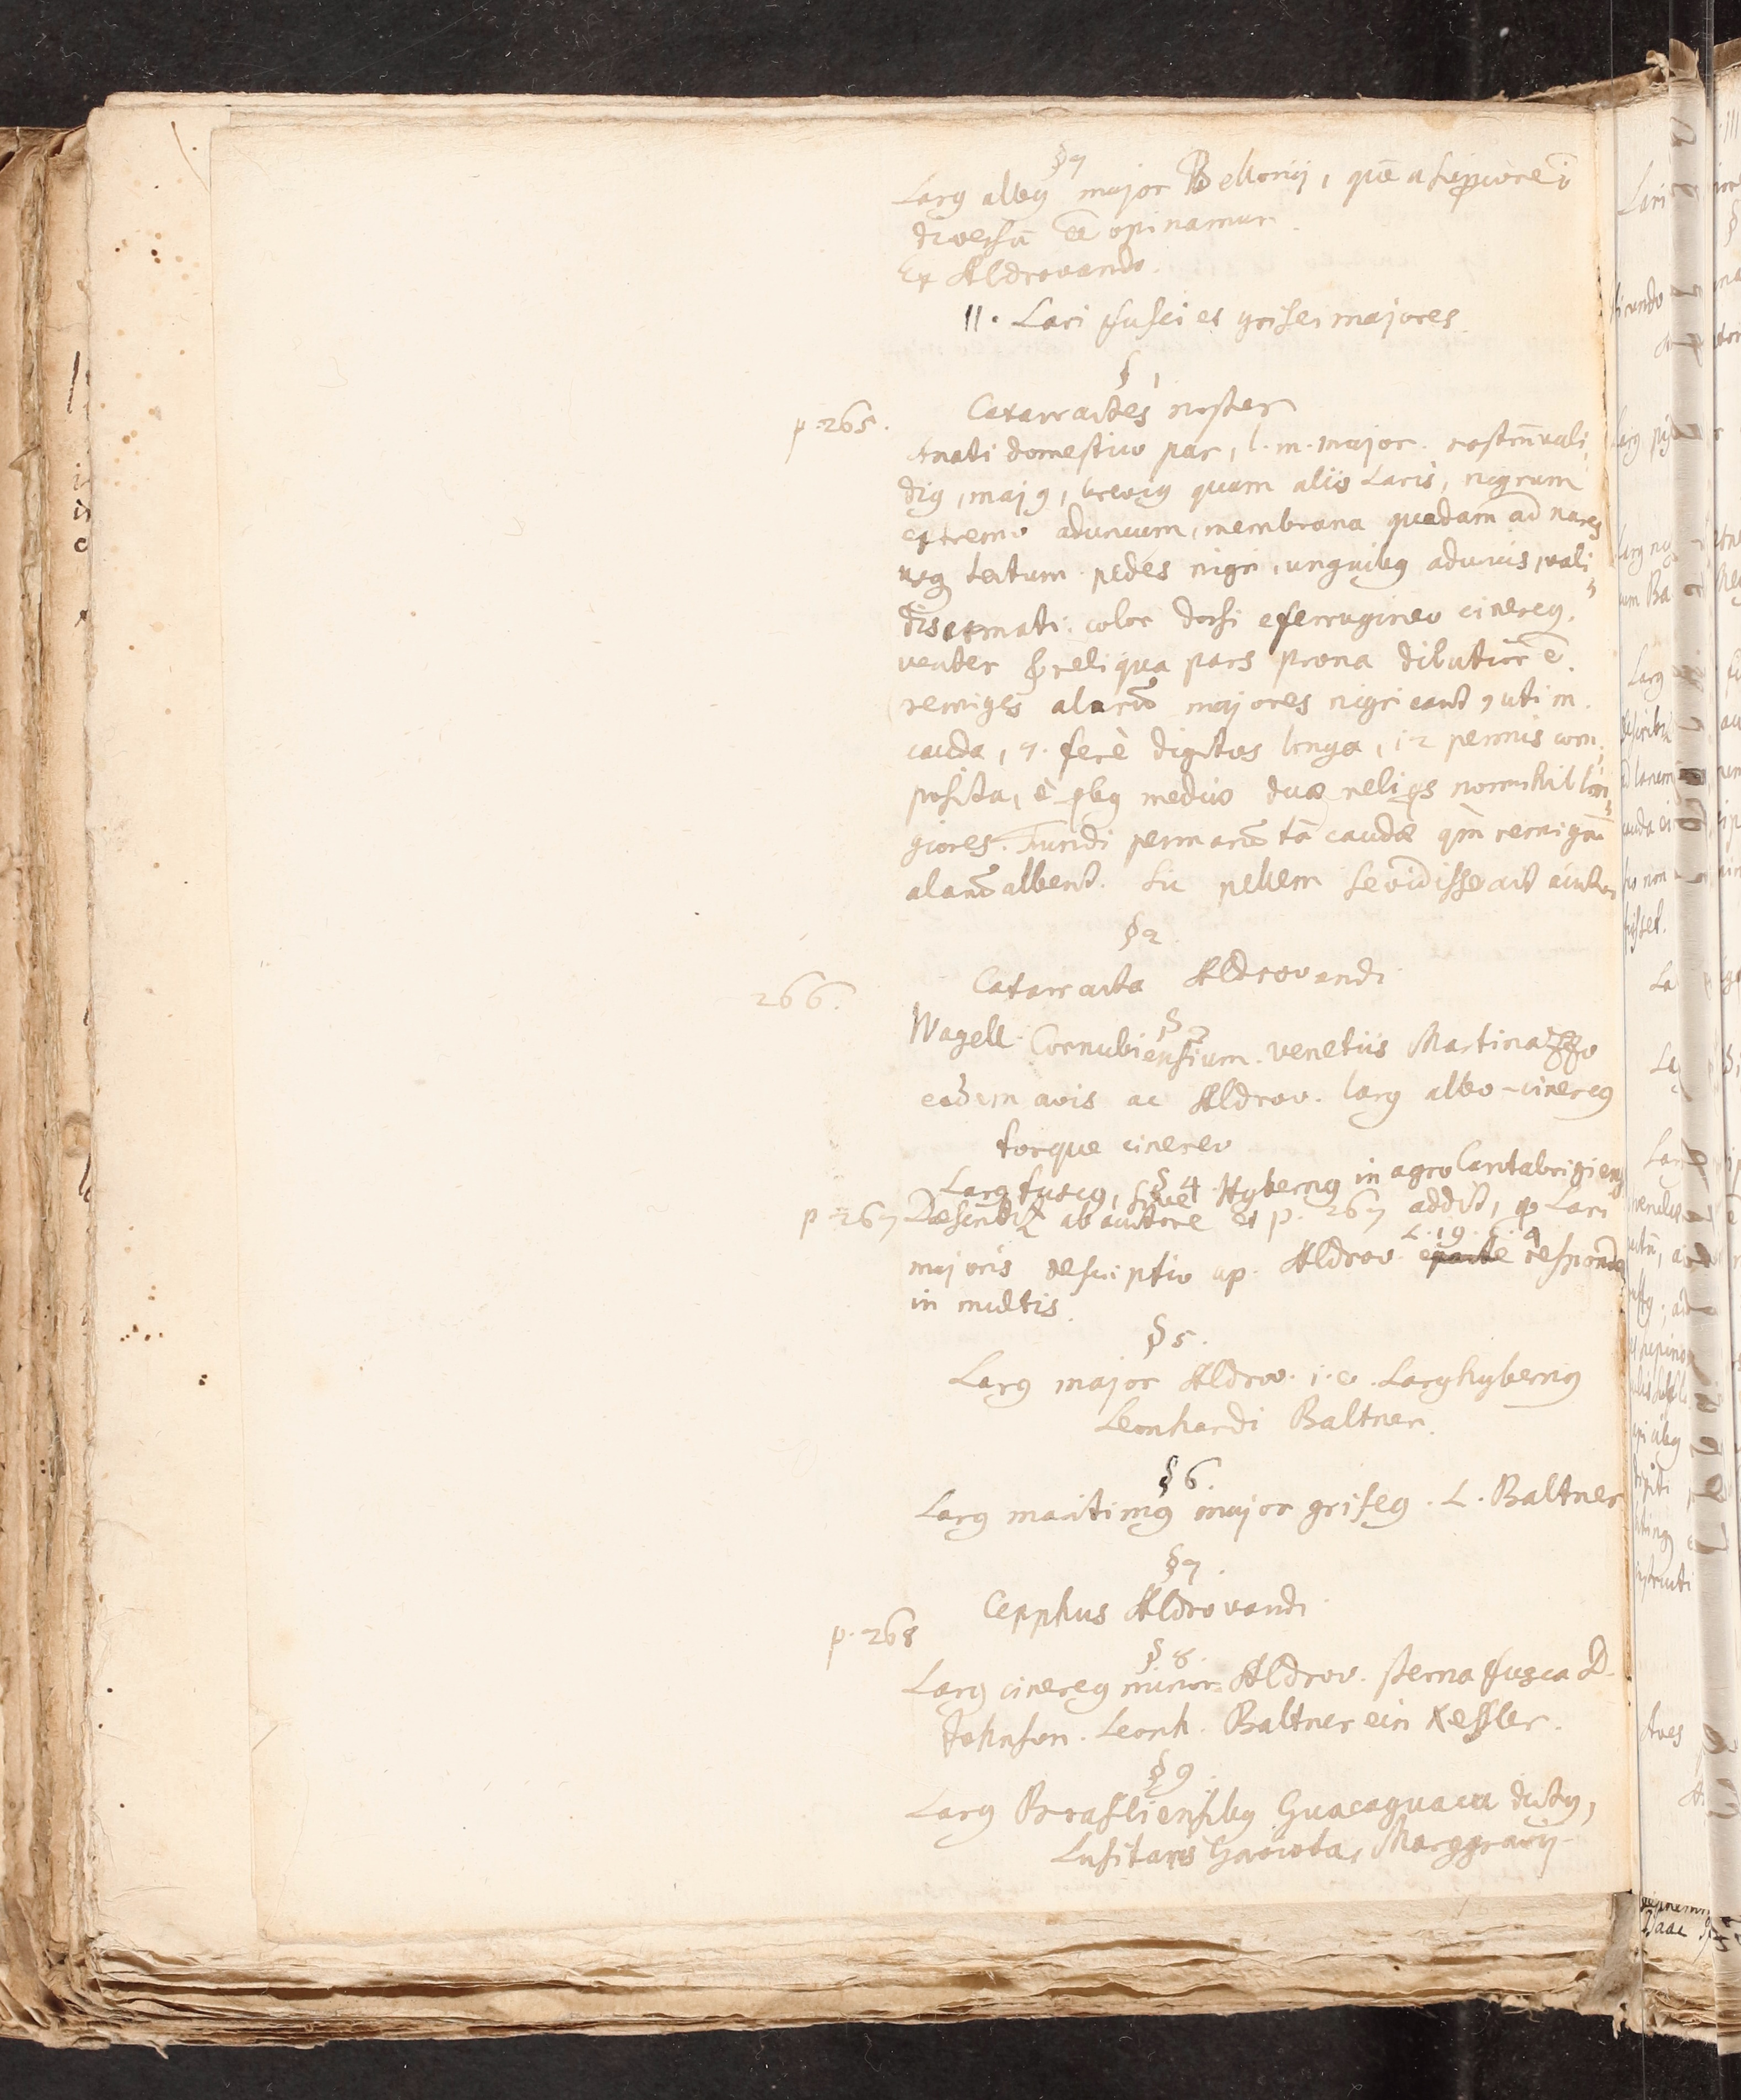 §7
Larꝰ albꝰ major Bellonij, quē a superiore ī
diversū eē opinamur.
Ex Aldrovando.
II. Lari fusci et grisei majores.
§ 1
p. 265.
Catarractes noster
Anati domestico par, l. m. major. rostrū vali-
diꝰ, majꝰ, breviꝰ quam aliis Laris, nigrum
extremo aduncum, membrana quadam ad nares
usqꝫ tectum. pedes nigri, unguibꝰ aduncis, vali-
dis armati. color dorsi e ferrugineo cinereꝰ.
venter & reliqua pars prona dilutior ē.
remiges alarū majores nigricant, uti in
cauda, 7. ferè digitos longa, 12 pennis com-
posita, è qbꝰ mediæ duæ reliqs nonnihil lon-
giores. Fundi pennarū tā caudæ qm̄ remigū
alarū albent. Sic pellem se vidisse ait autor
§2.
266.
Catarracta Aldrovandi
§ 3
Wagell Cornubiensium. Venetiis Martinazzo
eadem avis ac Aldrov. larꝰ albo-cinereꝰ
torque cinereo
§ 4
Larꝰ fuscꝰ, sive Hybernꝰ in agro Cantabrigiensi
p. 267 Describit ab autore et p. 267 addit, qꝫ Lari
L. 19. c. 4
majoris descriptio ap. Aldrov. exacte respondet
in multis.
§ 5.
Larꝰ major Aldrov. i.e. Larꝰ hybernꝰ
Leonhardi Baltner.
§ 6.
Larꝰ maritimꝰ major griseꝰ. L. Baltner
§7.
Cepphus Aldrovandi
p. 268
§ 8.
Larꝰ cinereꝰ minor Aldrov. sterna fusca D.
Johnson. Leonh. Baltner ein Kessler.
§ 9.
Larꝰ Brasiliensibꝰ Guacaguacu dictꝰ,
Lusitanis Gaviota, Marggravij